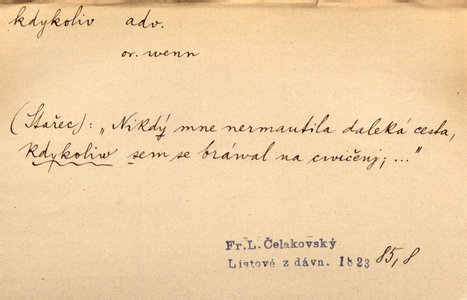 kdykoliv adv.
or. wenn
(Stařec): „Nikdý mne nermautila daleká cesta,
kdykoliw sem se bráwal na cwičenj; ..."
Fr. L. Čelakovský
Listové z dávn. 1823 85, 8